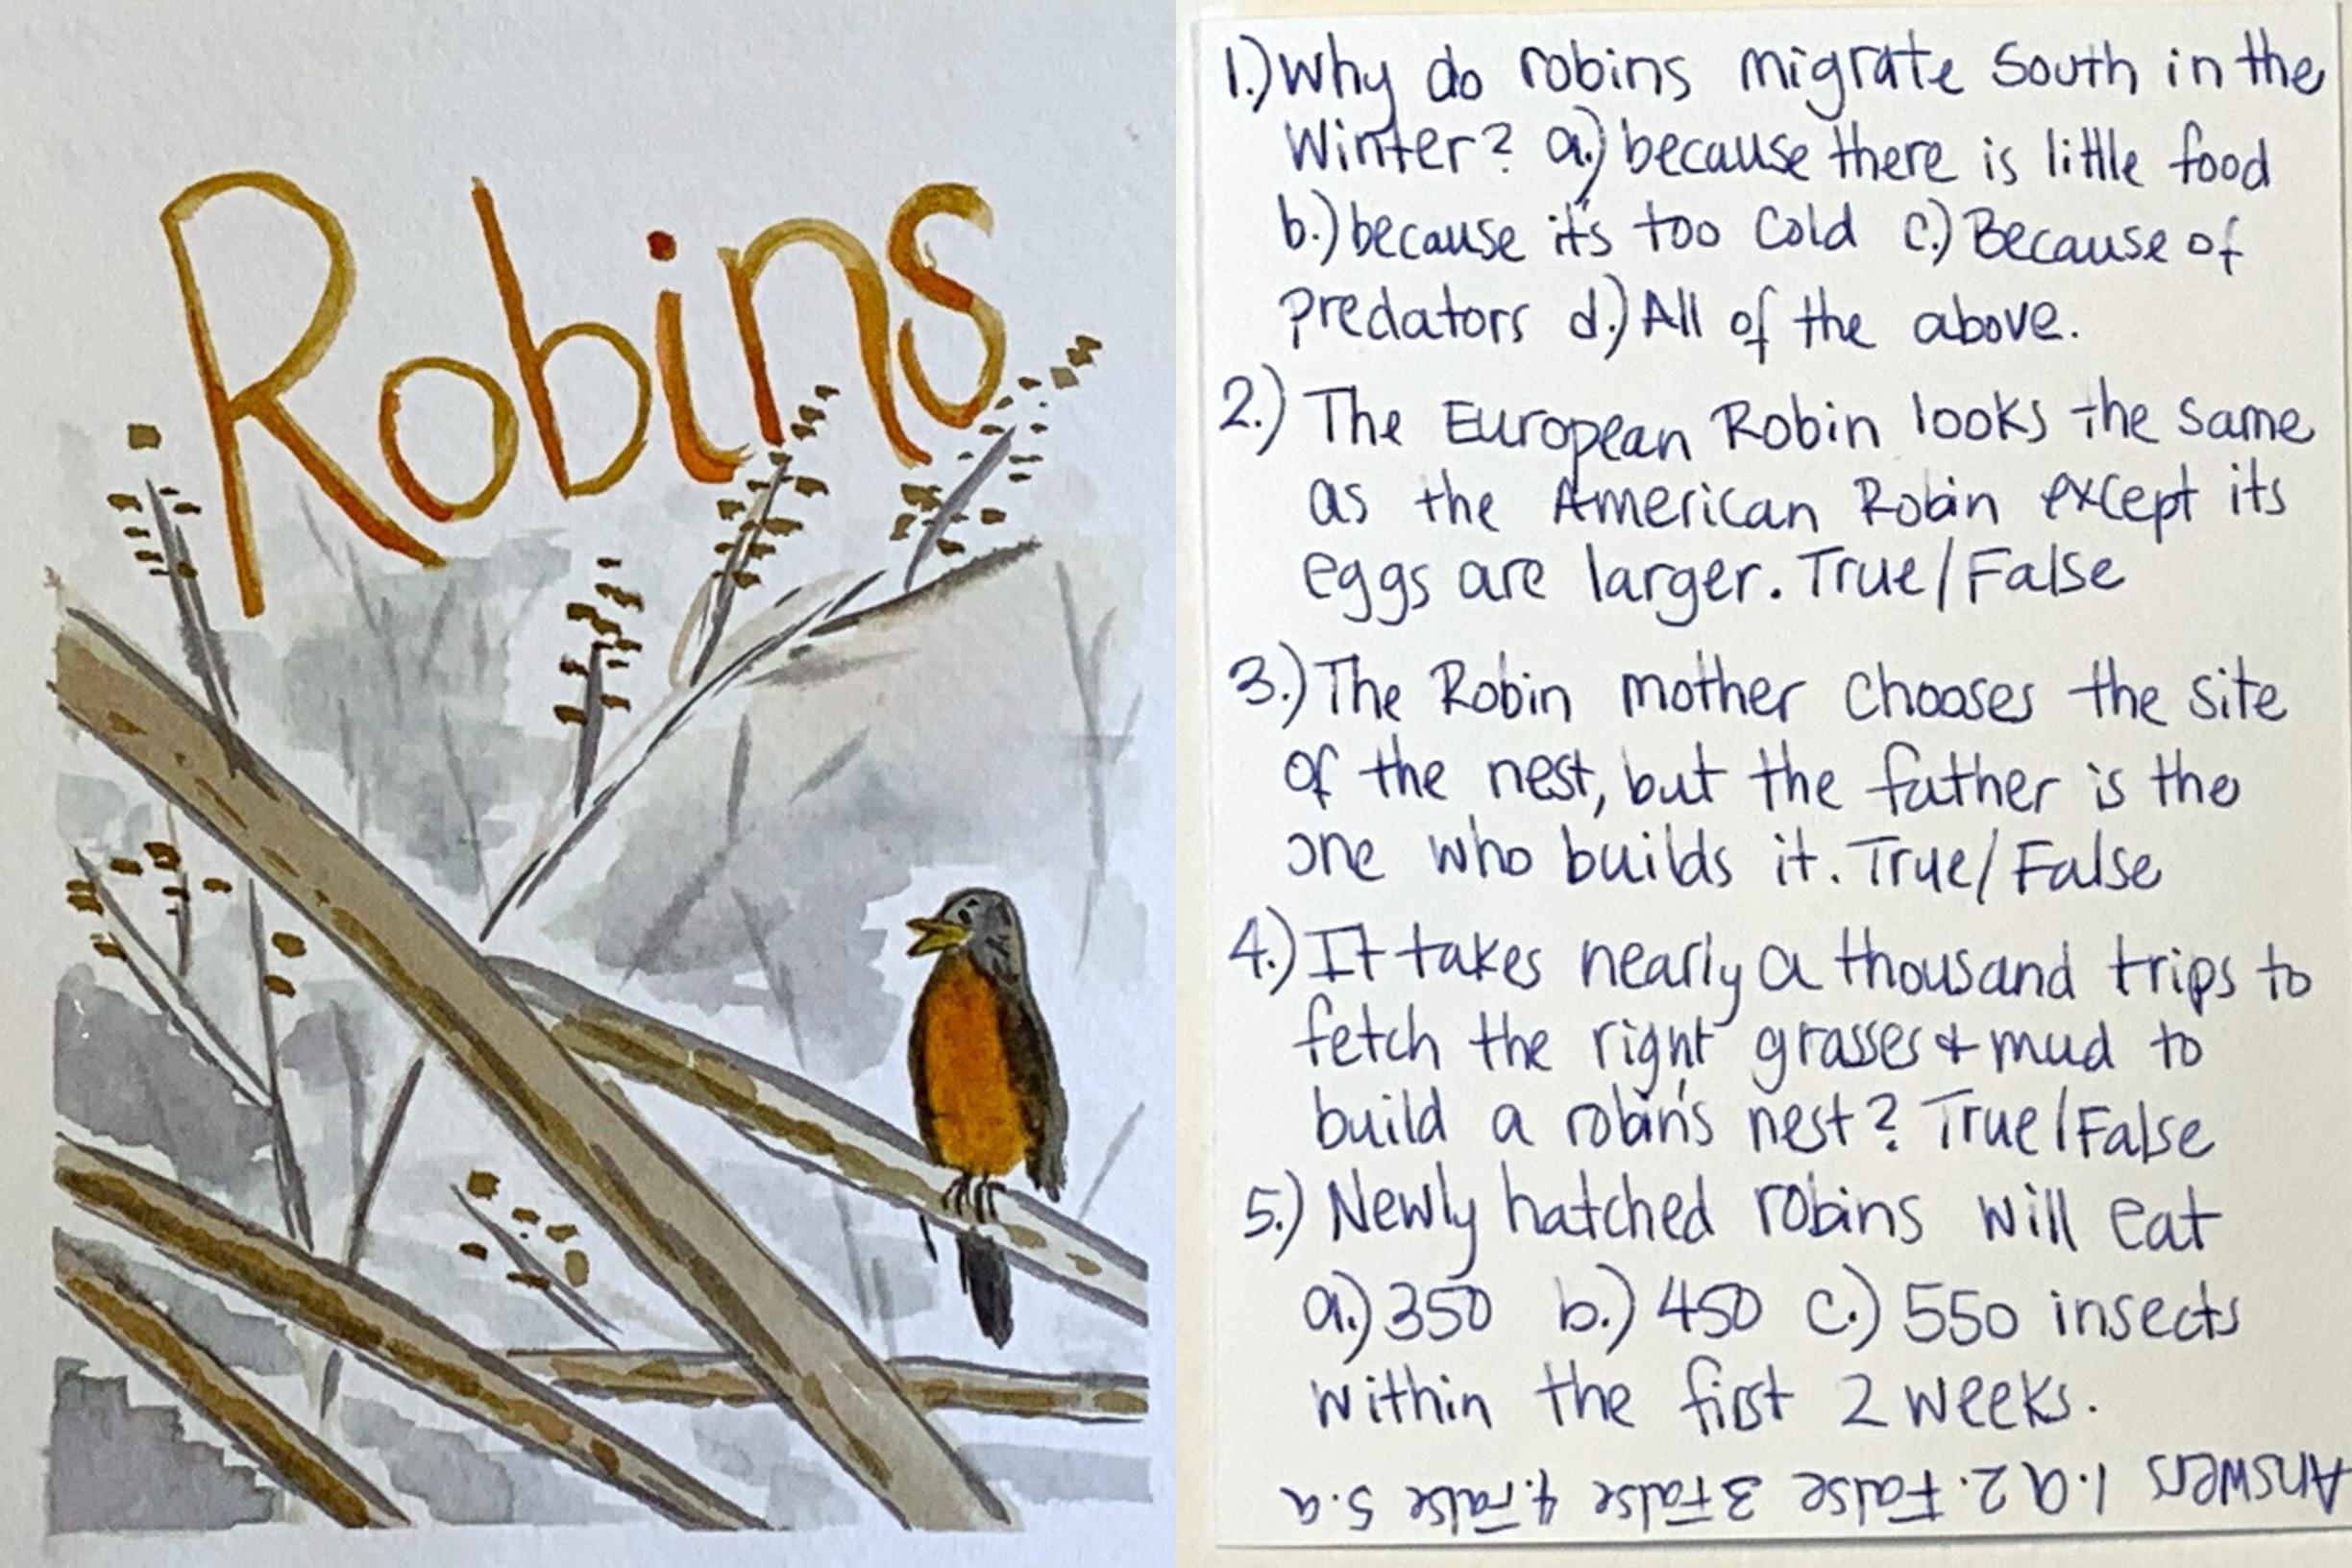 Robins
1.) Why do robins migrate South in the
Winter? a.) because there is little food
b.) because it's too Cold c.) Because of
predators d.) All of the above.
2.) The European Robin looks the same
as the American Robin except its
eggs are larger. True/False
3.) The Robin mother chooses the site
of the nest, but the father is the
one who builds it. True/False
4.) It takes nearly a thousand trips to
fetch the right grasses & mud to
build a robin's nest? True/False
5.) Newly hatched robins will eat
a.) 350 b.) 450 c.) 550 insects
within the first 2 weeks.
Answers 1. a 2. False 3 False 4. False 5. a